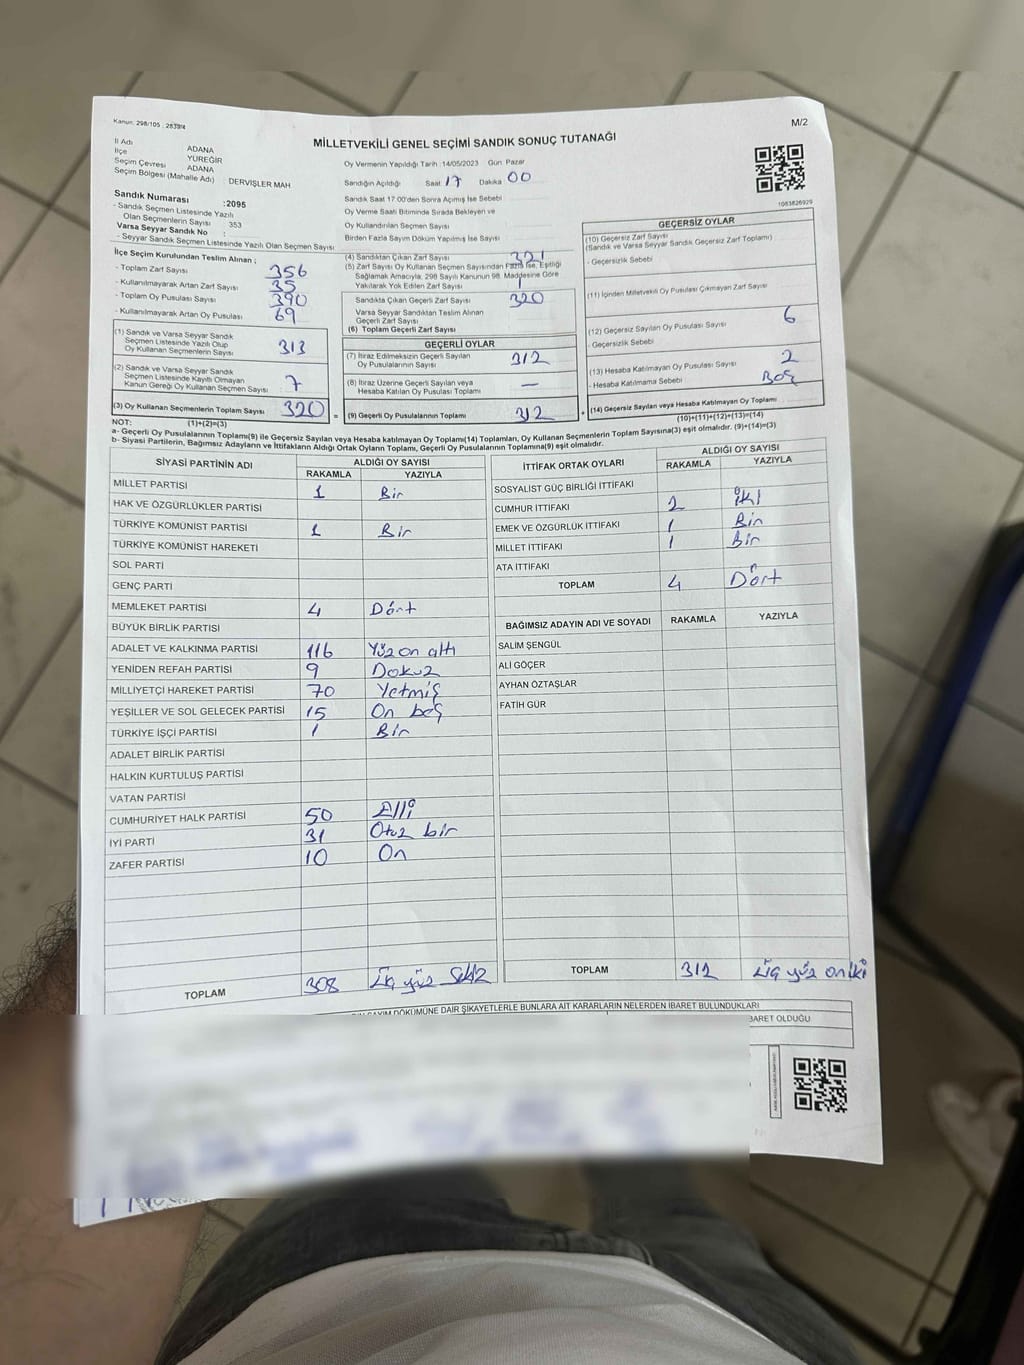 Kanun: 298/105 : 2839/4
M/2
MİLLETVEKİLİ GENEL SEÇİMİ SANDIK SONUÇ TUTANAĞI
İl Adı ADANA
İlçe YÜREĞİR
Seçim Çevresi ADANA
Seçim Bölgesi (Mahalle Adı) : DERVİŞLER MAH
Oy Vermenin Yapıldığı Tarih :14/05/2023 Gün Pazar
Sandığın Açıldığı Saat 17 Dakika 00
Sandık Saat 17.00'den Sonra Açımış İse Sebebi
Oy Verme Saati Bitiminde Sırada Bekleyen ve
Oy Kullandırılan Seçmen Sayısı
Birden Fazla Sayım Döküm Yapılmış İse Sayısı
1083826929
Sandık Numarası :2095
- Sandık Seçmen Listesinde Yazılı
Olan Seçmenlerin Sayısı : 353
Varsa Seyyar Sandık No :
- Seyyar Sandık Seçmen Listesinde Yazılı Olan Seçmen Sayısı
İlçe Seçim Kurulundan Teslim Alınan ;
- Toplam Zarf Sayısı 356
- Kullanılmayarak Artan Zarf Sayısı 35
- Toplam Oy Pusulası Sayısı 390
- Kullanılmayarak Artan Oy Pusulası 69
(1) Sandık ve Varsa Seyyar Sandık
Seçmen Listesinde Yazılı Olup
Oy Kullanan Seçmenlerin Sayısı 313
(2) Sandık ve Varsa Seyyar Sandık
Seçmen Listesinde Kayıtlı Olmayan
Kanun Gereği Oy Kullanan Seçmen Sayısı 7
(3) Oy Kullanan Seçmenlerin Toplam Sayısı 320 =
(4) Sandıktan Çıkan Zarf Sayısı 321
(5) Zarf Sayısı Oy Kullanan Seçmen Sayısından Fazla İse, Eşitliği
Sağlamak Amacıyla, 298 Sayılı Kanunun 98. Maddesine Göre
Yakılarak Yok Edilen Zarf Sayısı 1
Sandıkta Çıkan Geçerli Zarf Sayısı 320
Varsa Seyyar Sandıktan Teslim Alınan
Geçerli Zarf Sayısı
(6) Toplam Geçerli Zarf Sayısı
GEÇERLİ OYLAR
(7) İtiraz Edilmeksizin Geçerli Sayılan
Oy Pusulalarının Sayısı 312
(8) İtiraz Üzerine Geçerli Sayılan veya
Hesaba Katılan Oy Pusulası Toplamı —
(9) Geçerli Oy Pusulalarının Toplamı 312 +
GEÇERSİZ OYLAR
(10) Geçersiz Zarf Sayısı
(Sandık ve Varsa Seyyar Sandık Geçersiz Zarf Toplamı)
- Geçersizlik Sebebi
(11) İçinden Milletvekili Oy Pusulası Çıkmayan Zarf Sayısı
(12) Geçersiz Sayılan Oy Pusulası Sayısı 6
- Geçersizlik Sebebi
(13) Hesaba Katılmayan Oy Pusulası Sayısı 2
- Hesaba Katılmama Sebebi Boş
(14) Geçersiz Sayılan veya Hesaba Katılmayan Oy Toplamı
(10)+(11)+(12)+(13)=(14)
NOT: (1)+(2)=(3)
a- Geçerli Oy Pusulalarının Toplamı(9) ile Geçersiz Sayılan veya Hesaba katılmayan Oy Toplamı(14) Toplamları, Oy Kullanan Seçmenlerin Toplam Sayısına(3) eşit olmalıdır. (9)+(14)=(3)
b- Siyasi Partilerin, Bağımsız Adayların ve İttifakların Aldığı Ortak Oyların Toplamı, Geçerli Oy Pusulalarının Toplamına(9) eşit olmalıdır.
SİYASİ PARTİNİN ADI ALDIĞI OY SAYISI
RAKAMLA YAZIYLA
MİLLET PARTİSİ 1 Bir
HAK VE ÖZGÜRLÜKLER PARTİSİ
TÜRKİYE KOMÜNİST PARTİSİ 1 Bir
TÜRKİYE KOMÜNİST HAREKETİ
SOL PARTİ
GENÇ PARTİ
MEMLEKET PARTİSİ 4 Dört
BÜYÜK BİRLİK PARTİSİ
ADALET VE KALKINMA PARTİSİ 116 Yüz on altı
YENİDEN REFAH PARTİSİ 9 Dokuz
MİLLİYETÇİ HAREKET PARTİSİ 70 Yetmiş
YEŞİLLER VE SOL GELECEK PARTİSİ 15 On beş
TÜRKİYE İŞÇİ PARTİSİ 1 Bir
ADALET BİRLİK PARTİSİ
HALKIN KURTULUŞ PARTİSİ
VATAN PARTİSİ
CUMHURİYET HALK PARTİSİ 50 Elli
İYİ PARTİ 31 Otuz bir
ZAFER PARTİSİ 10 On
TOPLAM 308 Üç yüz Sekiz
İTTİFAK ORTAK OYLARI ALDIĞI OY SAYISI
RAKAMLA YAZIYLA
SOSYALİST GÜÇ BİRLİĞİ İTTİFAKI
CUMHUR İTTİFAKI 2 İki
EMEK VE ÖZGÜRLÜK İTTİFAKI 1 Bir
MİLLET İTTİFAKI 1 Bir
ATA İTTİFAKI
TOPLAM 4 Dört
BAĞIMSIZ ADAYIN ADI VE SOYADI RAKAMLA YAZIYLA
SALİM ŞENGÜL
ALİ GÖÇER
AYHAN ÖZTAŞLAR
FATİH GÜR
TOPLAM 312 Üç yüz on iki
SAYIM DÖKÜMÜNE DAİR ŞİKAYETLERLE BUNLARA AİT KARARLARIN NELERDEN İBARET BULUNDUKLARI
BARET OLDUĞU